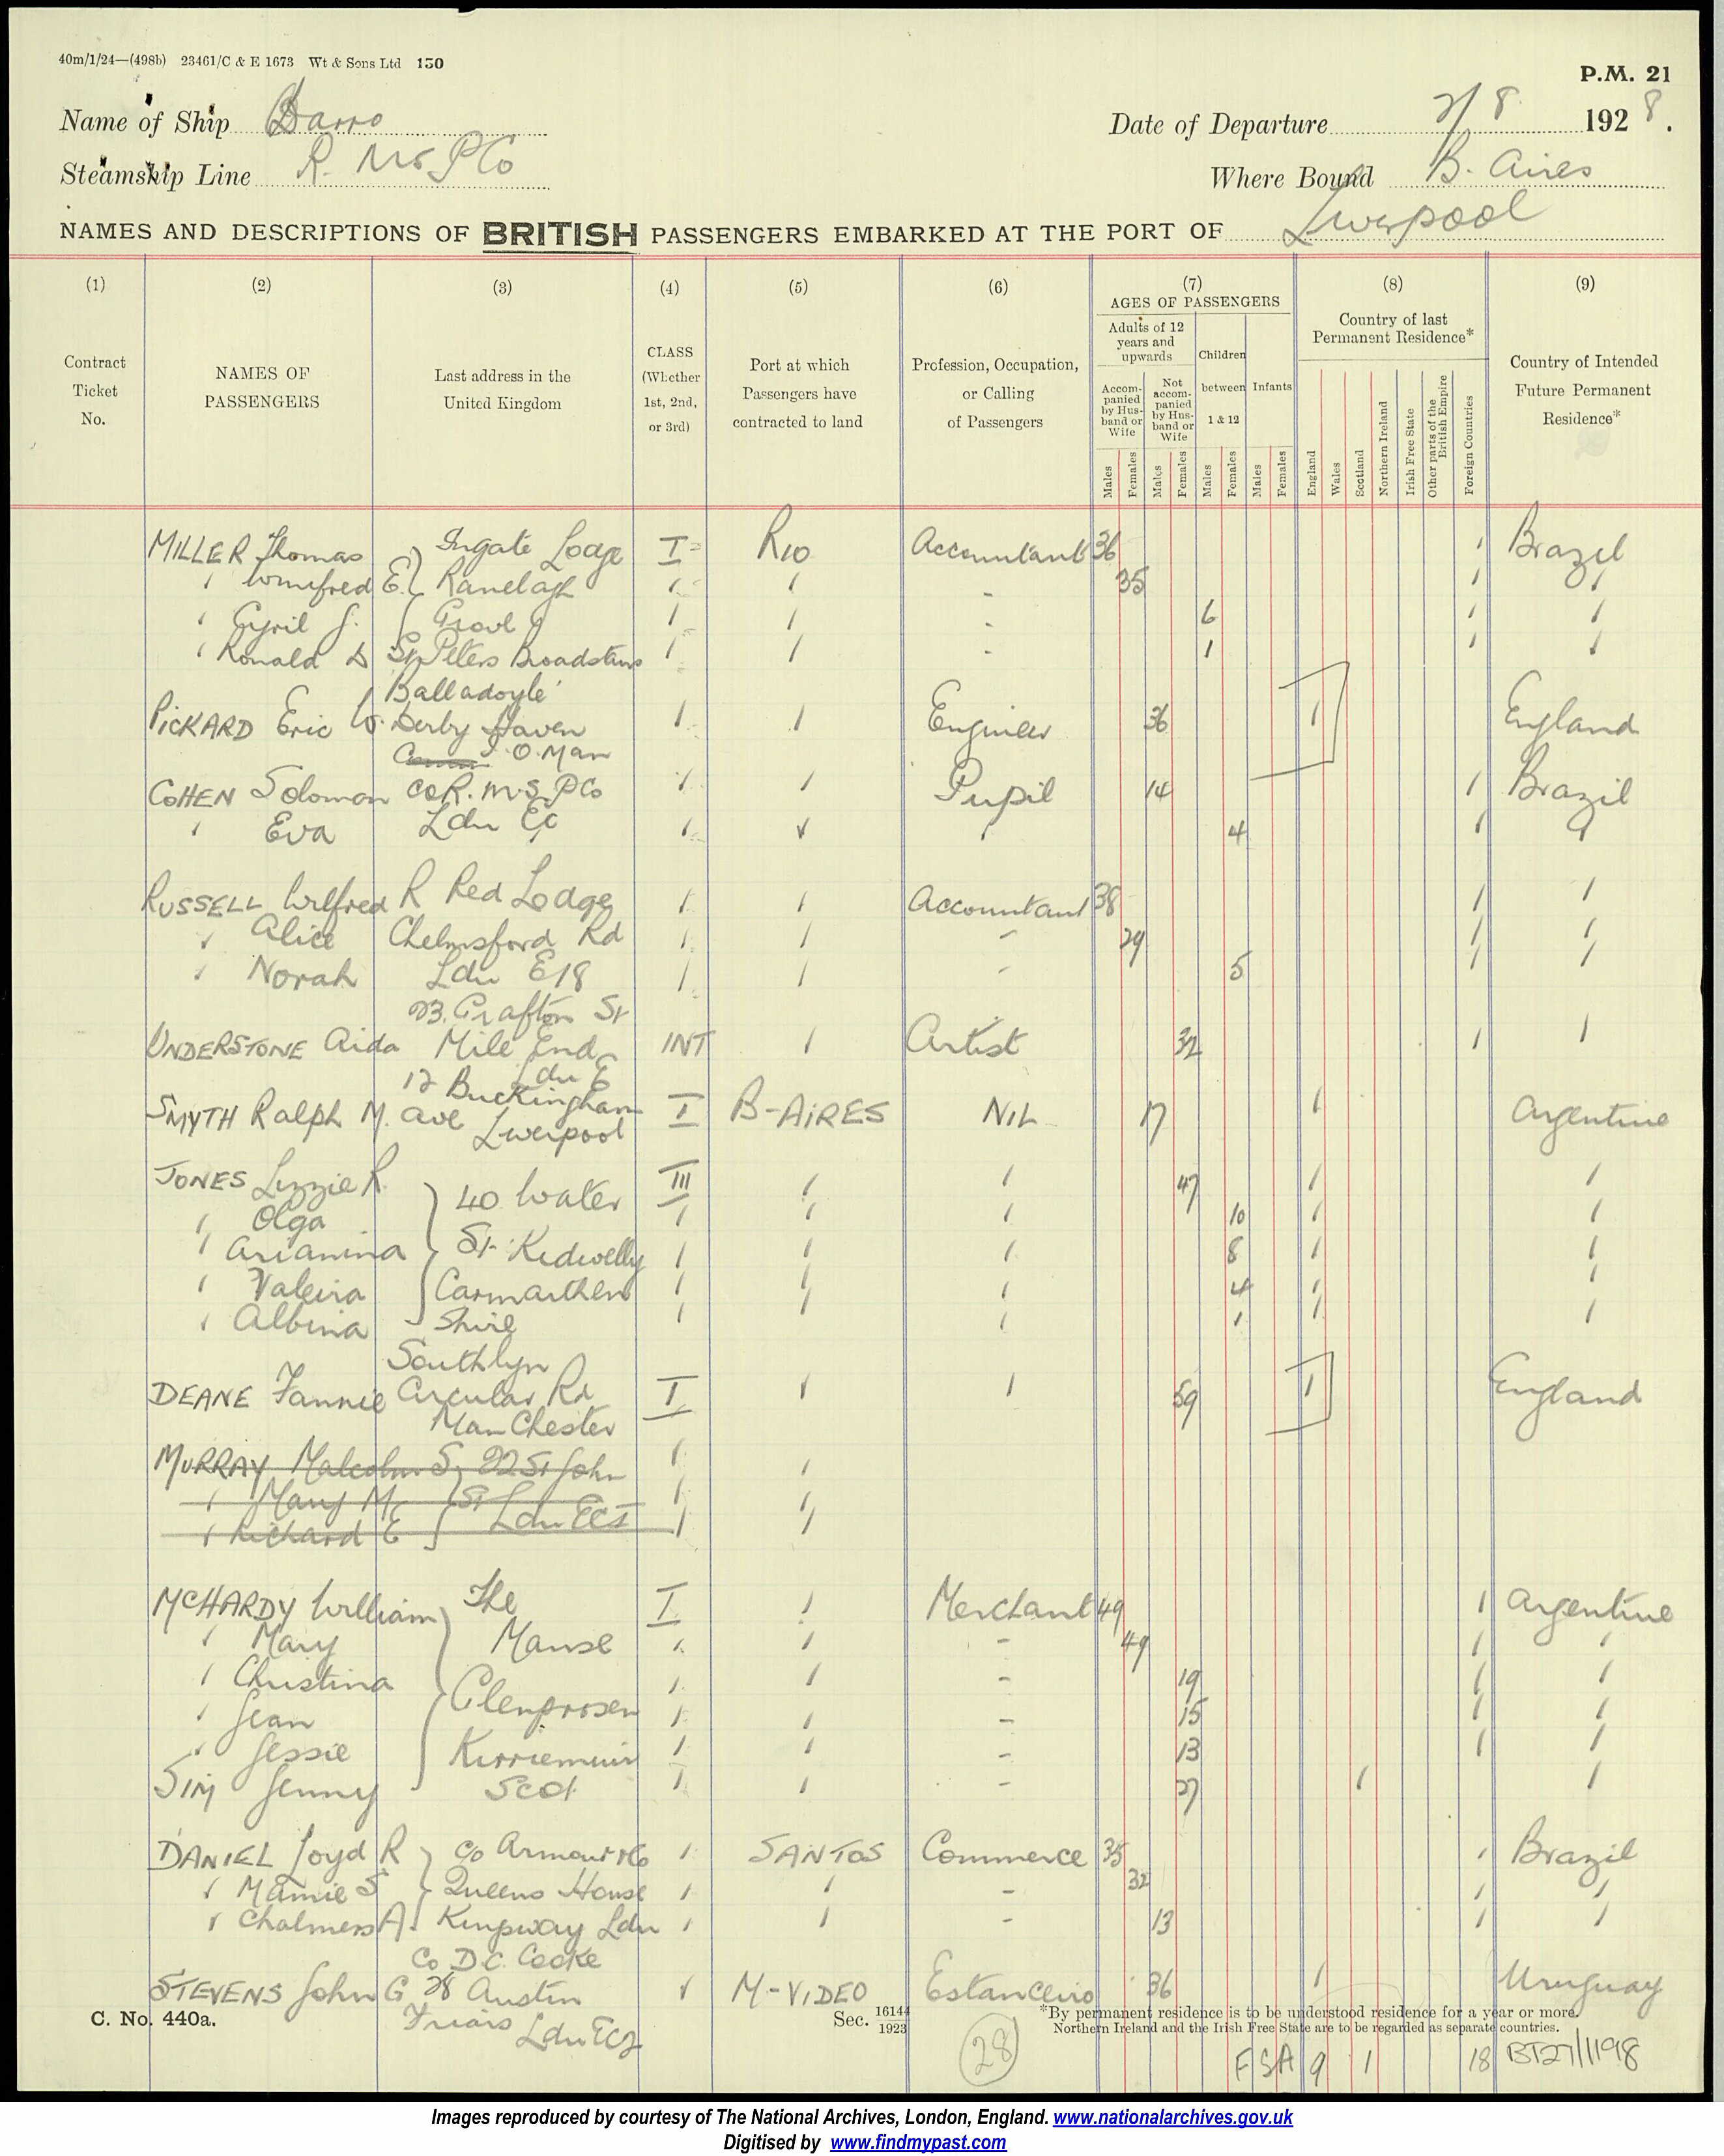 40m/1/24—(498b) 23461/C & E 1673 Wt & Sons Ltd 150
P.M. 21
Name of Ship Darro
Date of Departure 2/8 1928.
Steamship Line R. M S P Co
Where Bound B. Aires
NAMES AND DESCRIPTIONS OF BRITISH PASSENGERS EMBARKED AT THE PORT OF Liverpool
(1) (2) (3) (4) (5) (6) (7) (8) (9)
Contract Ticket No.
NAMES OF PASSENGERS
Last address in the United Kingdom
CLASS (Whether 1st, 2nd, or 3rd)
Port at which Passengers have contracted to land
Profession, Occupation, or Calling of Passengers
AGES OF PASSENGERS
Adults of 12 years and upwards
Accompanied by Husband or Wife
Not accompanied by Husband or Wife
Children between 1 & 12
Infants
Males Females Males Females Males Females Males Females
Country of last Permanent Residence*
England Wales Scotland Northern Ireland Irish Free State Other parts of the British Empire Foreign Countries
Country of Intended Future Permanent Residence*
MILLER Thomas } Ingate Lodge I Rio Accountant 36 1 Brazil
" Winifred E. Ranelagh " " - 35 1 "
" Cyril J. Grove " " - 6 1 "
" Ronald D St Peters Broadstairs " " - 1 1 "
Balladoyle
PICKARD Eric W. Derby Haven " " Engineer 36 1 England
I. O. Man
COHEN Solomon co R. M.S.P Co " " Pupil 14 1 Brazil
" Eva Ldn EC " " " 4 1 "
RUSSELL Wilfred R Red Lodge " " Accountant 38 1 "
" Alice Chelmsford Rd " " - 29 1 "
" Norah Ldn E18 " " - 5 1 "
23. Grafton St
UNDERSTONE Aida Mile End INT " Artist 32 1 "
Ldn E
12 Buckingham
SMYTH Ralph M. ave Liverpool I B-AIRES NIL 17 1 Argentine
JONES Lizzie R. } 40 Water III " " 47 1 "
" Olga " " " 10 1 "
" Arianina St. Kidwelly " " " 8 1 "
" Valeira Carmarthen " " " 4 1 "
" Albina Shire " " " 1 1 "
Southlyn
DEANE Fannie Circular Rd I " " 59 1 England
Manchester
MURRAY Malcolm S. 22 St John " "
" Mary M St " "
" Richard E Ldn EC1 " "
MCHARDY William } The I " Merchant 49 1 Argentine
" Mary Manse " " - 49 1 "
" Christina " " - 19 1 "
" Jean Glenprosen " " - 15 1 "
" Jessie Kirriemuir " " - 13 1 "
SIM Jenny Scot " " - 27 1 "
DANIEL Loyd R } co Armour & Co " SANTOS Commerce 35 1 Brazil
" Mamie S Queens House " " - 32 1 "
" Chalmers A. Kingsway Ldn " " - 13 1 "
Co D.C. Cocke
STEVENS John G 28 Austin " M-VIDEO Estanceiro 36 1 Uruguay
Friars Ldn EC2
C. No. 440a.
Sec. 16144/1923
*By permanent residence is to be understood residence for a year or more.
Northern Ireland and the Irish Free State are to be regarded as separate countries.
28 F S A 9 1 18 BT27/1198
Images reproduced by courtesy of The National Archives, London, England. www.nationalarchives.gov.uk
Digitised by www.findmypast.com